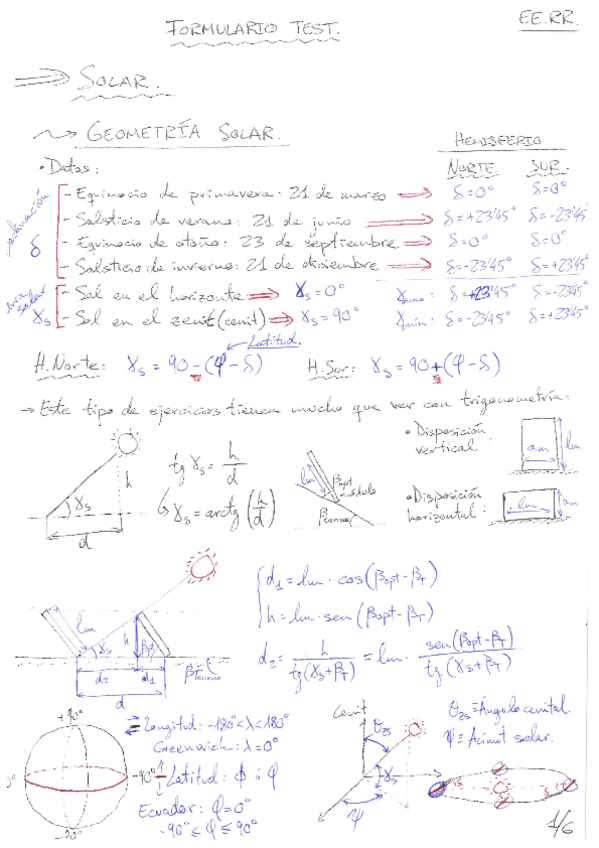 EE.RR.
FORMULARIO TEST.
SOLAR.
GEOMETRÍA SOLAR.
HEMISFERIO
• Datos:
NORTE SUR
δ
- Equinocio de primavera: 21 de marzo ⇒ δ=0° δ=0°
- Solsticio de verano: 21 de junio ⇒ δ=+23'45° δ=-23'45°
- Equinocio de otoño: 23 de septiembre ⇒ δ=0° δ=0°
- Solsticio de invierno: 21 de diciembre ⇒ δ=-23'45° δ=+23'45°
γs
- Sol en el horizonte ⇒ γs=0° γmáx: δ=+23'45° δ=-23'45°
- Sol en el zenit (cenit) ⇒ γs=90° γmín: δ=-23'45° δ=+23'45°
Latitud.
H. Norte: γs = 90-(φ-δ) H. Sur: γs = 90+(φ-δ)
→ Este tipo de ejercicios tienen mucho que ver con trigonometría:
• Disposición vertical:
am
lm
• Disposición horizontal:
lm
am
h
γs
d
tg γs = h/d
γs = arctg (h/d)
lm
βopt
módulo
βterreno
d1 = lm · cos(βopt-βT)
h = lm · sen(βopt-βT)
d2 = h / tg(γs+βT) = lm · sen(βopt-βT) / tg(γs+βT)
lm
γs
h
d2
d1
d
βterreno
+90°
-90°
Longitud: -180°<λ<180°
Greenwich: λ=0°
Latitud: ϕ ó φ
Ecuador: φ=0°
-90° ≤ φ ≤ 90°
Cenit
θzs
γs
ψ
θzs ≡ Ángulo cenital.
ψ ≡ Acimut solar.
1/6